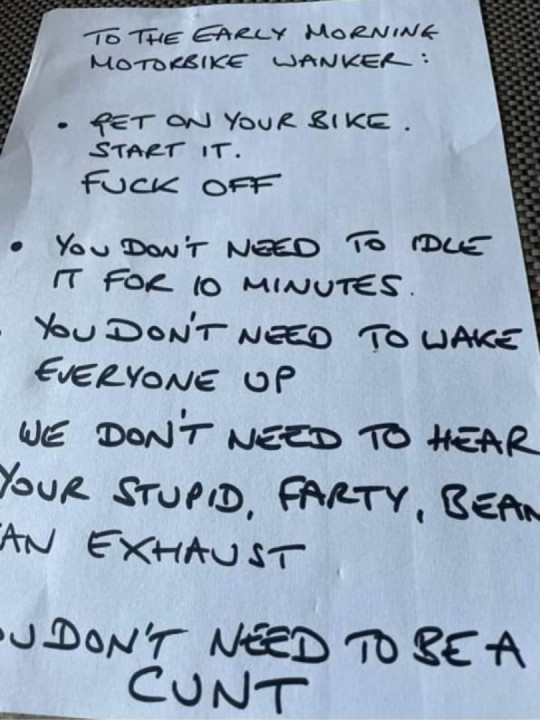 TO THE EARLY MORNING
MOTORBIKE WANKER :
• GET ON YOUR BIKE.
START IT.
FUCK OFF
• YOU DON'T NEED TO IDLE
IT FOR 10 MINUTES.
YOU DON'T NEED TO WAKE
EVERYONE UP
WE DON'T NEED TO HEAR
YOUR STUPID, FARTY, BEAN
AN EXHAUST
OU DON'T NEED TO BE A
CUNT